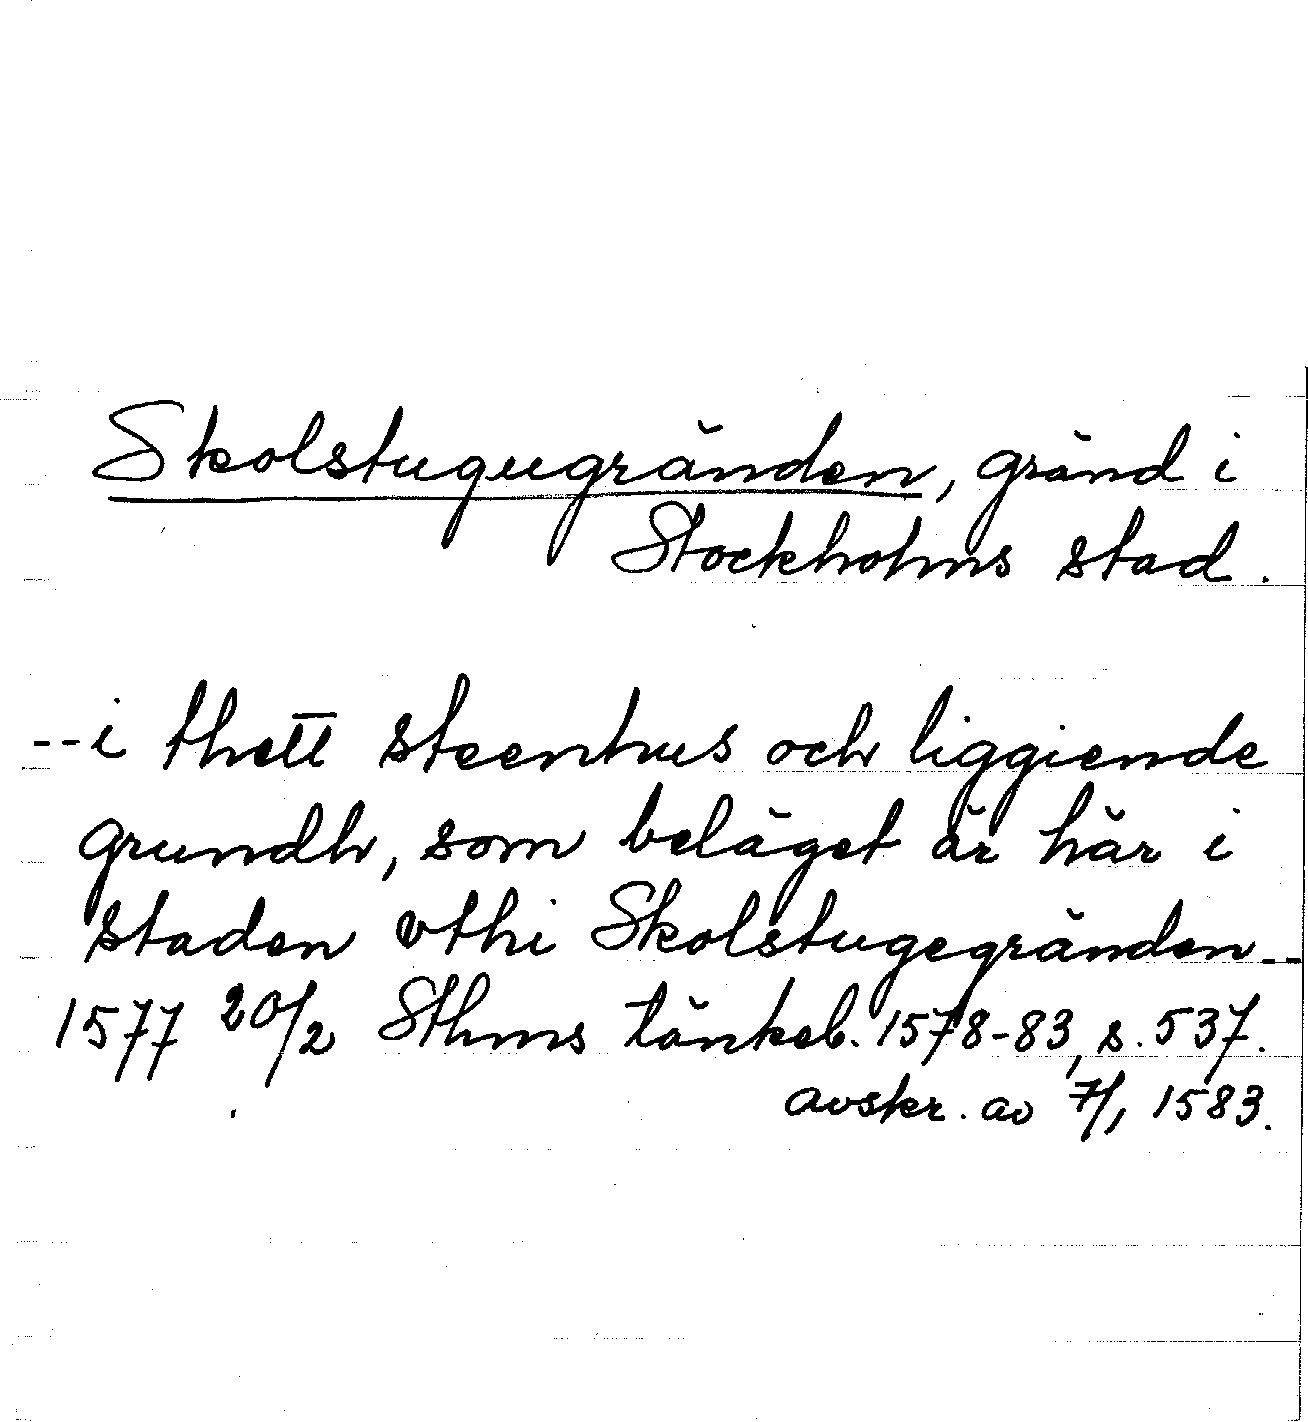 Skolstugugränden, gränd i
Stockholms stad.
--i thett steenhus och liggiende
grundh, som beläget är här i
staden vthi Skolstugegränden--
1577 20/2 Sthms tänkeb. 1578-83, s. 537.
avskr. av 7/1 1583.